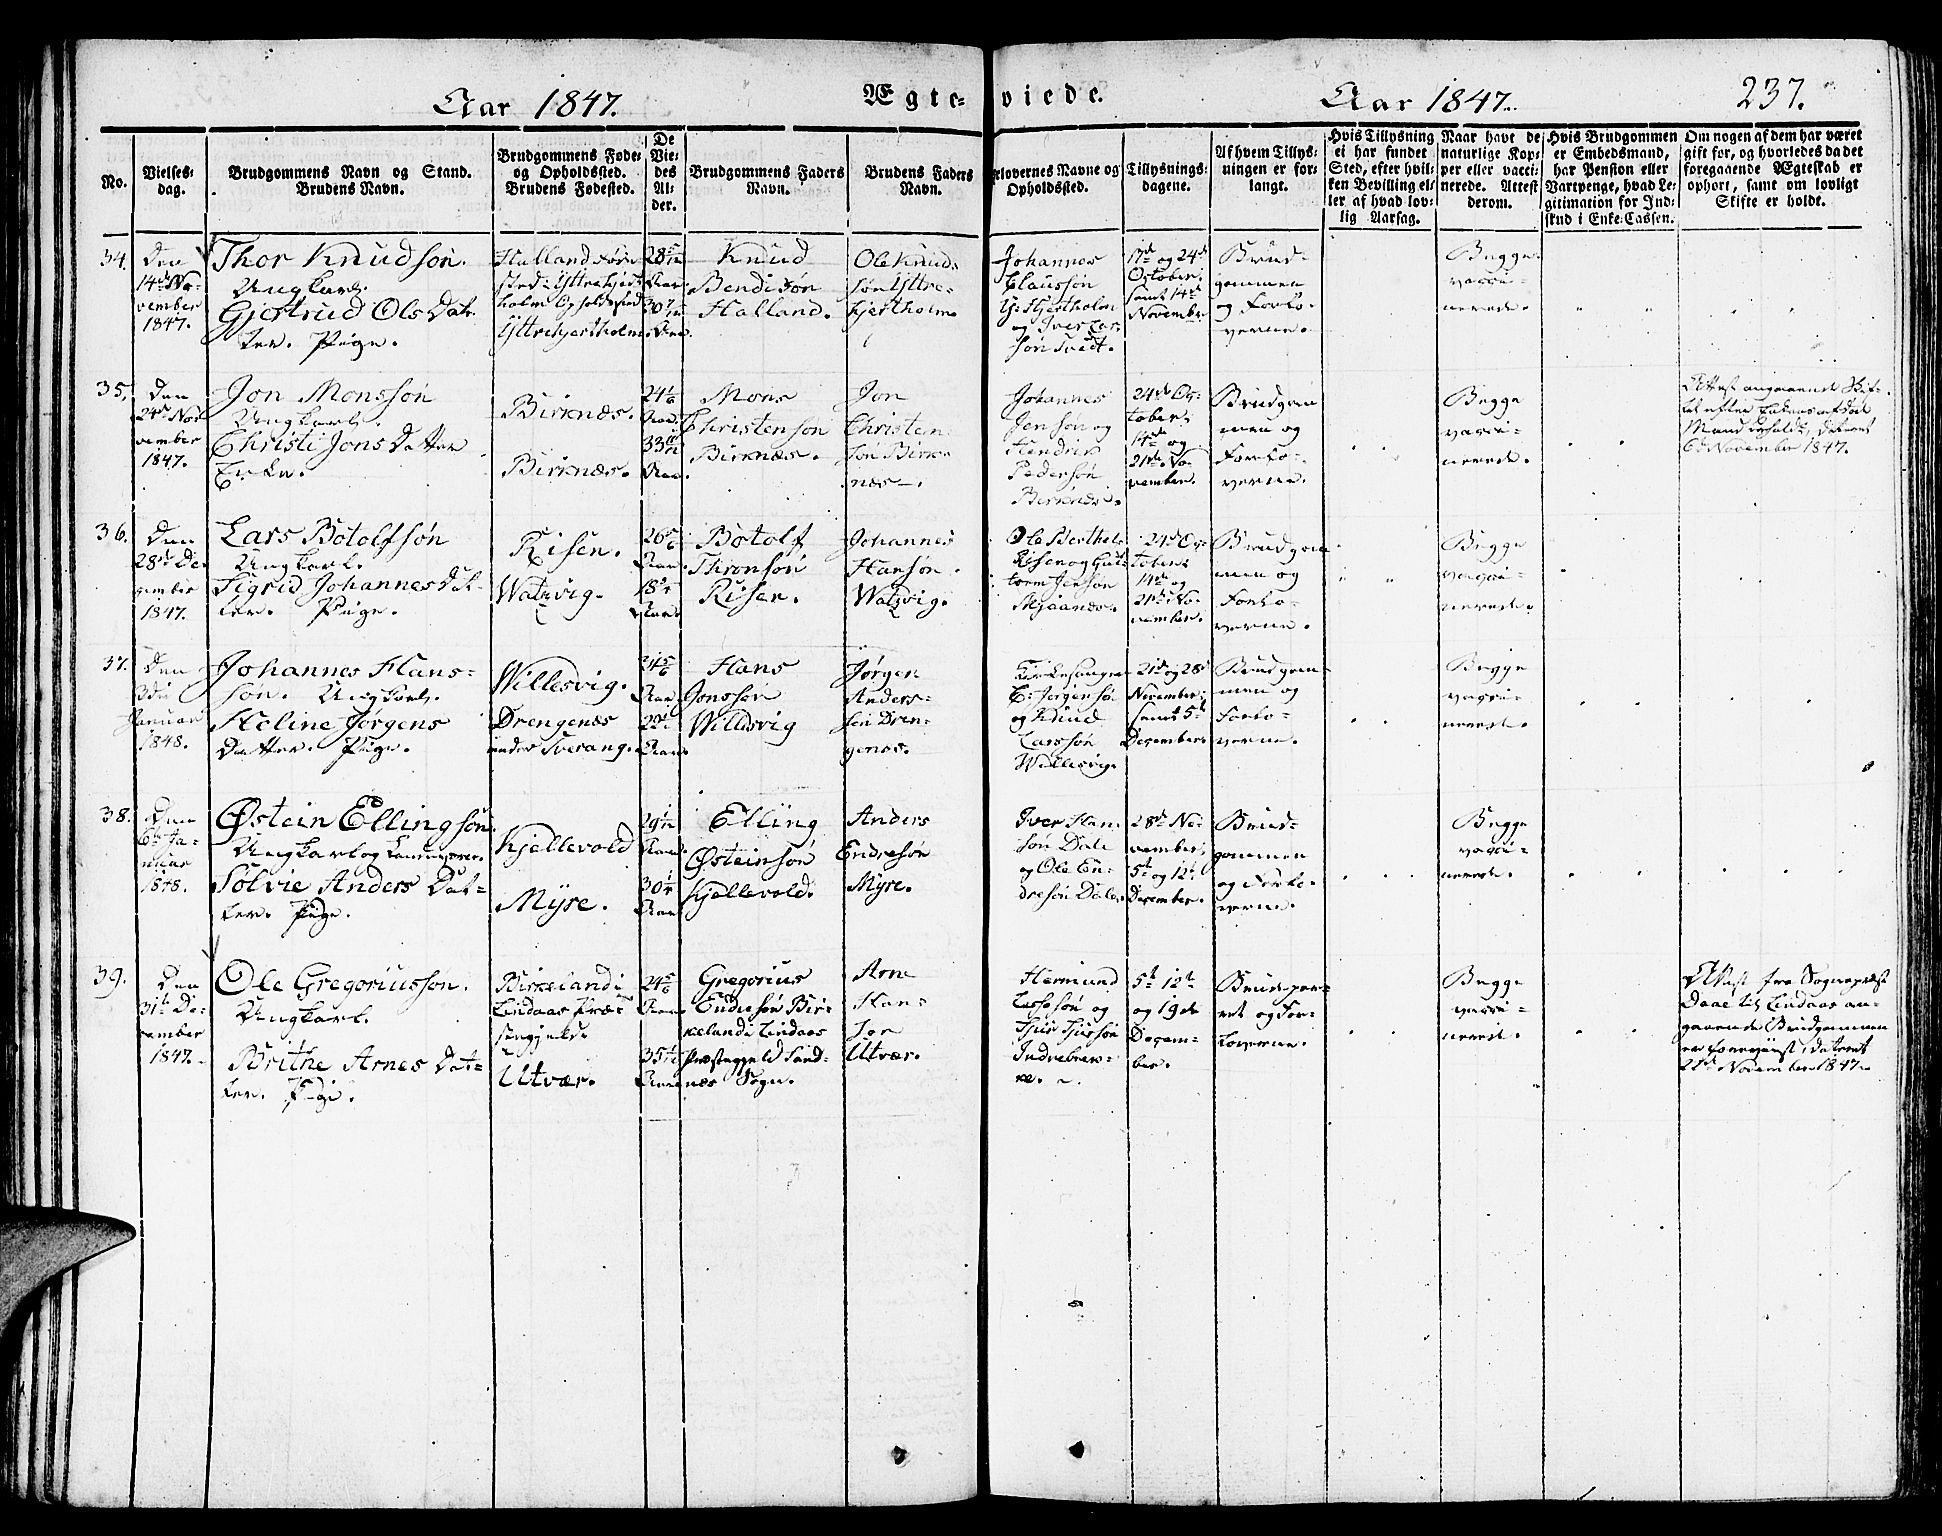 Aar 1847. Ægte- viede. Aar 1847. 237.
No.
Vielses-
dag.
Brudgommens Navn og Stand.
Brudens Navn.
Brudgommens Føde-
og Opholdssted.
Brudens Fødested.
De
Vie-
des
Al-
der.
Brudgommens Faders
Navn.
Brudens Faders
Navn.
lovernes Navne og
Opholdssted.
Tillysnings-
dagene.
Af hvem Tillys-
ningen er for-
langt.
Hvis Tillysning
ei har fundet
Sted, efter hvil-
ken Bevilling el-
ler af hvad lov-
lig Aarsag.
Naar havt de
naturlige Kop-
per eller vacci-
nerede. Attest
derom.
Hvis Brudgommen
er Embedsmand,
har Pension eller
Vartpenge, hvad Le-
gitimation for Ind-
skud i Enke-Cassen.
Om nogen af dem har været
gift før, og hvorledes da det
foregaaende Ægteskab er
ophørt, samt om lovligt
Skifte er holdt.
34.
Den
14de No-
vember
1847.
Thor Knudsøn.
Ungkarl.
Gjertrud Ols Dat-
ter. Pige.
Halland
Yttrehjertholm
28 5/12
Aar
30 7/12
Aar.
Knud
Bendixøn
Halland.
Ole Knud-
søn Yttre-
hjertholm
Johannes
Claussøn
Y: Hjertholm
og Iver Lar-
søn Tvedt.
17de og 24de
October,
samt 14de
November
Brud-
gommen
og Forlo-
verne.
Begge
vacci-
nerede.
35,
Den
24de No-
vember
1847.
Jon Monssøn
Ungkarl.
Christi Jons Datter
Enke.
Birknæs.
Birknæs.
24 1/6
Aar.
33 11/12
Aar.
Mons
Christensøn
Birknæs.
Jon
Christen
søn Birk-
næs.
Johannes
Jensøn og
Hendrik
Pedersøn
Birknæs.
24de Oc-
tober,
14de og
21de No-
vember.
Brudgom
men og
Forlo-
verne.
Begge
vacci-
nerede.
Attest angaaende Skif-
tet efter Enkens afdøde
Mand dateret
6 November 1847.
36.
Den
28de De-
cember
1847.
Lars Botolfsøn
Ungkarl.
Sigrid Johannes Dat-
ter. Pige.
Risen.
Watzvig.
26 5/6
Aar.
18
Aar.
Botolf
Thronsøn
Risen.
Johannes
Hansøn.
Watzvig.
Ole Berthel
Risen og Gut-
torm Jensøn
Mjaanæs.
24de Oc-
tober
14de og
21de No-
vember.
Brudgom
men og
Forlo-
verne.
Begge
vacci-
nerede.
37.
Den
3die
Januar
1848.
Johannes Hans-
søn. Ungkarl.
Heline Jørgens
Datter. Pige.
Willesvig.
Drengenæs
under Sverang.
24 5/6
Aar
22
Aar.
Hans
Jonssøn
Willesvig
Jørgen
Anders-
søn Dren-
genæs.
Kirkesanger
E: Jørgensøn
og Knud
Larssøn
Willesvig.
21de og 28de
November,
samt 5te
December
Brudgom-
men og
Forlo-
verne.
Begge
vacci-
nerede.
38.
Den
6te Ja-
nuar
1848.
Østein Ellingsøn.
Ungkarl og
Sølvie Anders Dat-
ter. Pige.
Kjellevold
Myre.
29 1/12
Aar.
30
Aar
Elling
Østeinsøn
Kjellevold.
Anders
Endresøn
Myre.
Iver Han
søn Dale
og Ole En-
dresøn Dale.
28de No-
vember,
5te og 12te
December.
Brud-
gommen
og Forlo-
verne.
Begge
vacci-
nerede.
39.
Den
31te De-
cember
1847.
Ole Gregoriussøn.
Ungkarl.
Brithe Arnes Dat-
ter. Pige.
Birkeland i
Lindaas Præ-
stegjeld
Utvær.
24 5/6
Aar
35
Aar
Gregorius
Endresøn Bir-
keland i Lindaas
Præstegjeld Sand-
næs Sogn.
Arne
Han-
søn
Utvær.
Hermund
Lassesøn og
Indrebræk-
ke.
5te 12te
og 19de
Decem-
ber.
Brudepar-
ret og For-
loverne.
Begge
vacci-
nerede.
Attest fra Sognepræst
Daae til Lindaas an-
gaaende Brudgommen
er foreviist, dateret
21de November 1847.